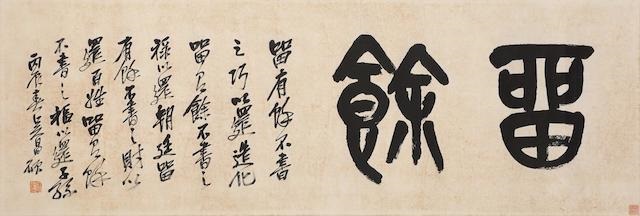 畱餘
畱有餘不盡
之巧以還造化
畱有餘不盡之
祿以還朝廷畱
有餘不盡之財以
還百姓畱有餘
不盡之福以還子孫
丙辰春吳昌碩